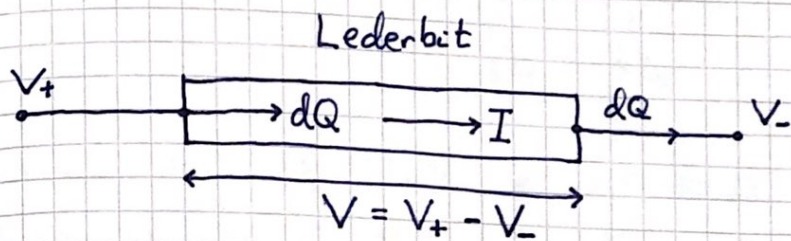 Lederbit
V+
dQ
I
dQ
V-
V = V+ - V-